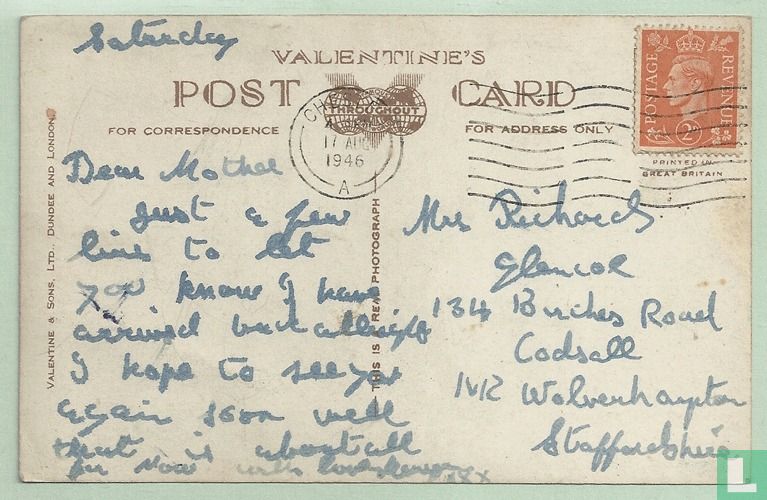 Saturday
VALENTINE'S
POST CARD
THROUGHOUT
FOR CORRESPONDENCE
FOR ADDRESS ONLY
17 AUG
1946
A
POSTAGE
REVENUE
2D
PRINTED IN
GREAT BRITAIN
VALENTINE & SONS, LTD., DUNDEE AND LONDON.
THIS IS A REAL PHOTOGRAPH
Dear Mother
Just a few
lines to let
you know I have
arrived back allright
I hope to see you
again soon well
that is about all
for now with love
Mrs Richards
Glencoe
134 Birches Road
Codsall
Nr Wolverhampton
Staffordshire
LastDodo